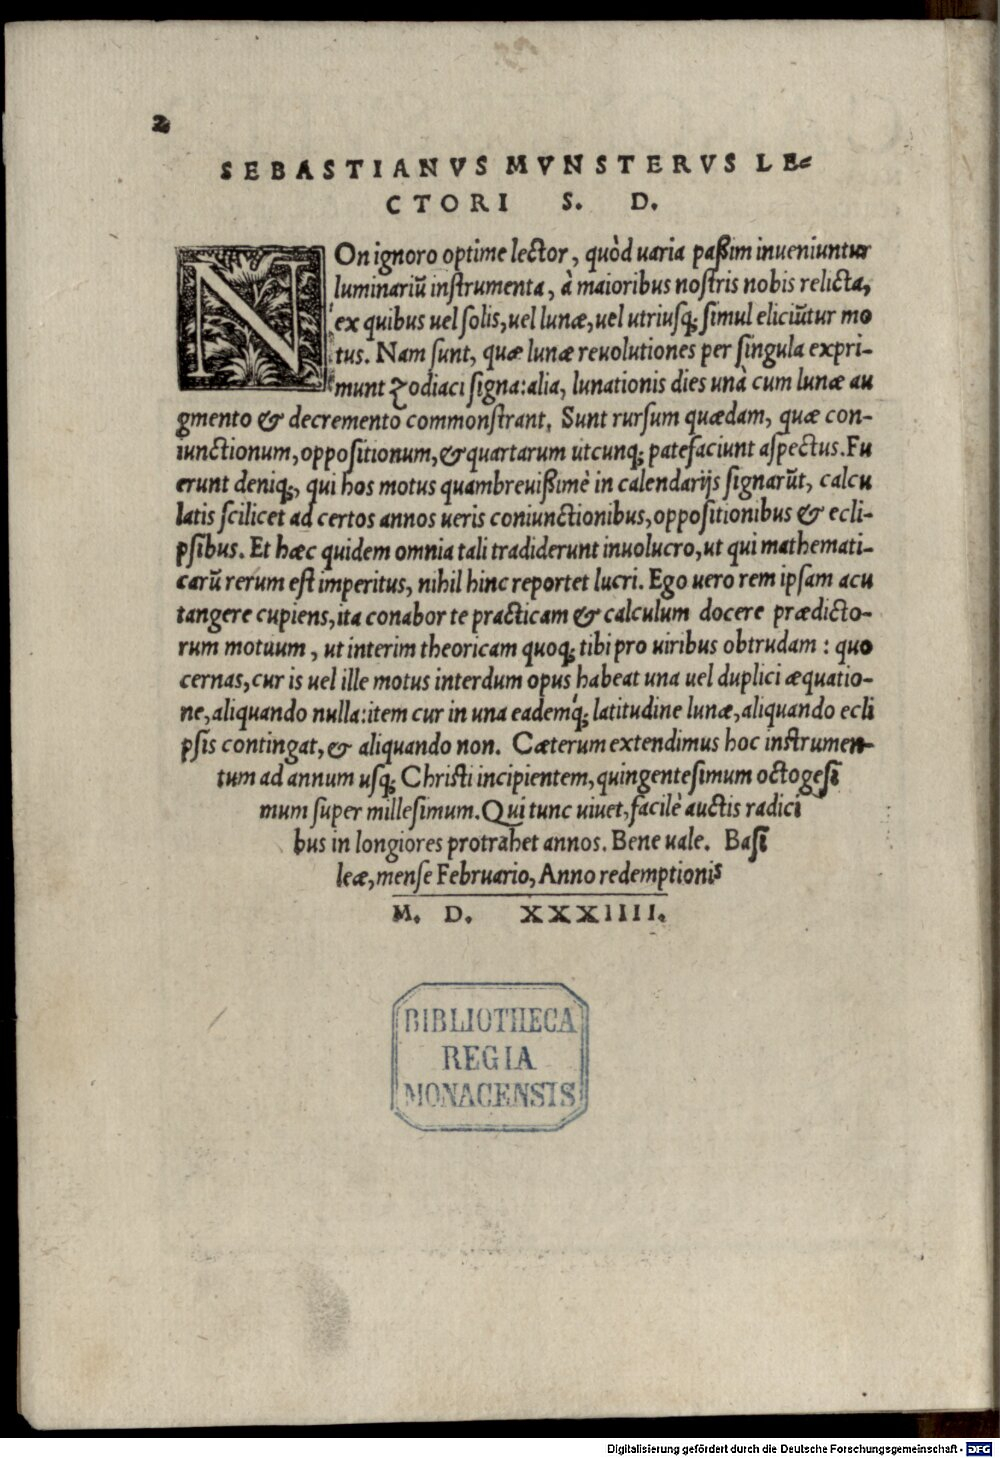 2
SEBASTIANVS MVNSTERVS LE-
CTORI S. D.
NOn ignoro optime lector, quòd uaria paßim inueniuntur
luminariũ inſtrumenta, à maioribus noſtris nobis relicta,
ex quibus uel ſolis, uel lunæ, uel utriuſq; ſimul eliciũtur mo
tus. Nam ſunt, quæ lunæ reuolutiones per ſingula expri-
munt zodiaci ſigna: alia, lunationis dies unà cum lunæ au
gmento & decremento commonſtrant. Sunt rurſum quædam, quæ con-
iunctionum, oppoſitionum, & quartarum utcunq; patefaciunt aſpectus. Fu
erunt deniq;, qui hos motus quambreuißimè in calendarijs ſignarũt, calcu
latis ſcilicet ad certos annos ueris coniunctionibus, oppoſitionibus & ecli-
pſibus. Et hæc quidem omnia tali tradiderunt inuolucro, ut qui mathemati-
carũ rerum eſt imperitus, nihil hinc reportet lucri. Ego uero rem ipſam acu
tangere cupiens, ita conabor te practicam & calculum docere prædicto-
rum motuum, ut interim theoricam quoq; tibi pro uiribus obtrudam: quo
cernas, cur is uel ille motus interdum opus habeat una uel duplici æquatio-
ne, aliquando nulla: item cur in una eademq́; latitudine lunæ, aliquando ecli
pſis contingat, & aliquando non. Cæterum extendimus hoc inſtrumen-
tum ad annum uſq; Chriſti incipientem, quingenteſimum octogeſi
mum ſuper milleſimum. Qui tunc uiuet, facilè auctis radici
bus in longiores protrahet annos. Bene uale. Baſi
leæ, menſe Februario, Anno redemptionis
M. D. XXXIIII.
BIBLIOTHECA
REGIA
MONACENSIS
Digitalisierung gefördert durch die Deutsche Forschungsgemeinschaft - DFG